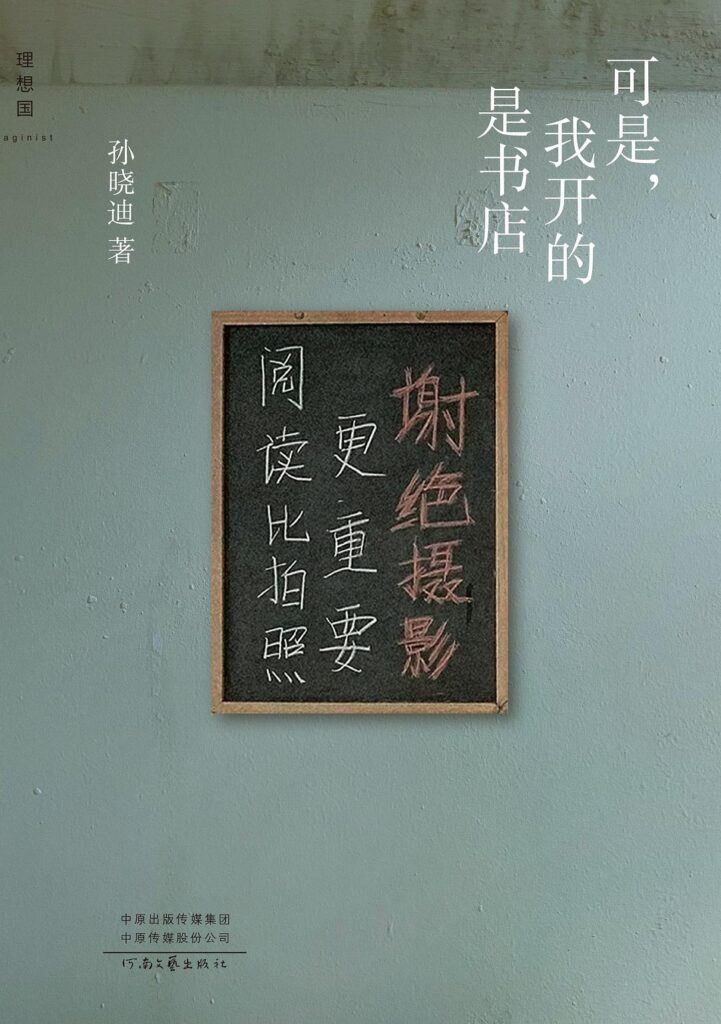 理想国
aginist
可是，
我开的
是书店
孙晓迪 著
谢绝摄影
更重要
阅读比拍照
中原出版传媒集团
中原传媒股份公司
河南文艺出版社